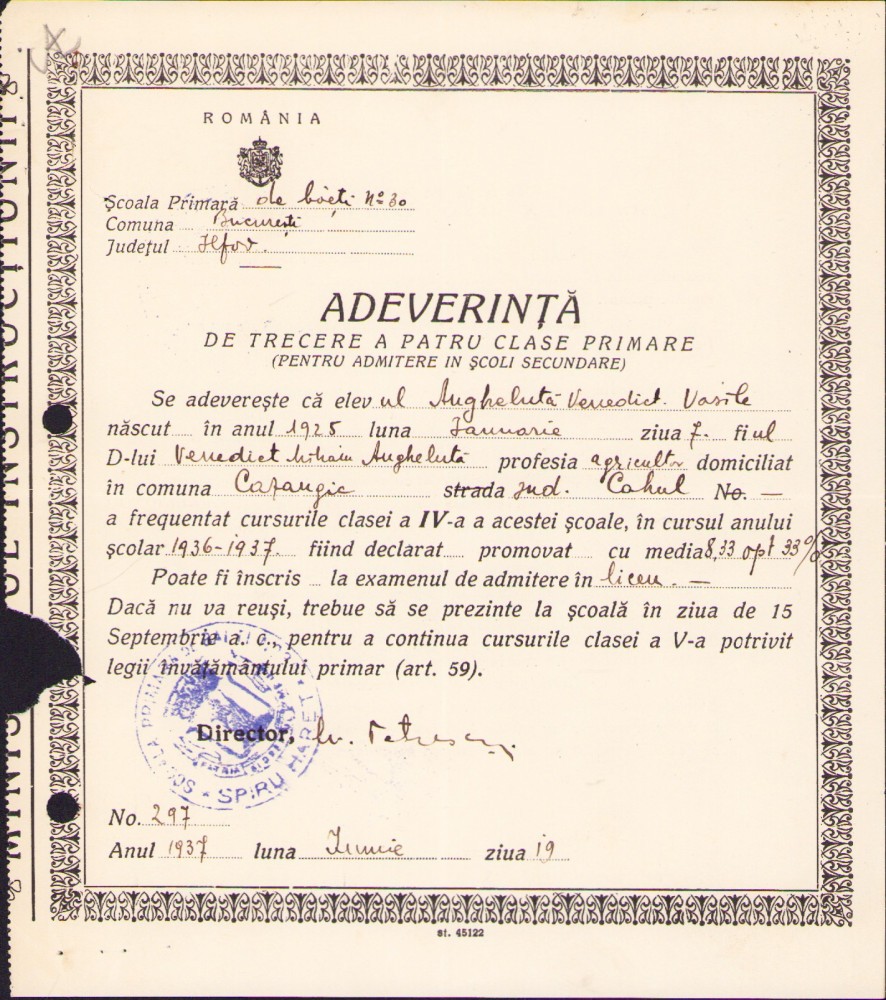 ROMÂNIA
Școala Primară de băeți No 30
Comuna București
Județul Ilfov.
ADEVERINȚĂ
DE TRECERE A PATRU CLASE PRIMARE
(PENTRU ADMITERE IN ȘCOLI SECUNDARE)
Se adeverește că elev ul Anghelută Venedict. Vasile
născut în anul 1925 luna Ianuarie ziua 7. fiul
D-lui Venedict Mihain Anghelută profesia agricultor domiciliat
în comuna Cazangic strada jud. Cahul No. —
a frequentat cursurile clasei a IV-a a acestei școale, în cursul anului
școlar 1936-1937. fiind declarat promovat cu media 8,33 opt 33%
Poate fi înscris la examenul de admitere în liceu. —
Dacă nu va reuși, trebue să se prezinte la școală în ziua de 15
Septembrie a. c., pentru a continua cursurile clasei a V-a potrivit
legii învățământului primar (art. 59).
Director, Petrescu
SPIRU HARET
No. 297
Anul 1937 luna Iunie ziua 19
st. 45122